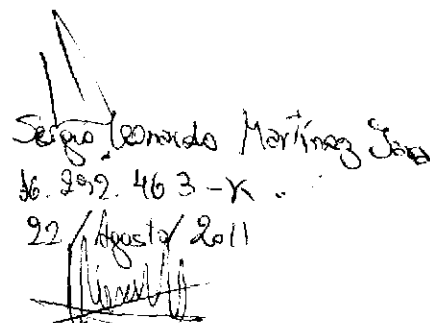 Sergio Leonardo Martínez Jara
16.292.463-K.
22/Agosto/2011